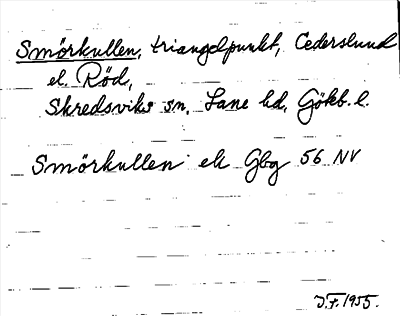 Smörkullen, triangelpunkt, Cederslund
el. Röd,
Skredsviks sn, Lane hd, Götéb. l.
Smörkullen ek Gbg 56 NV
J.F. 1955.